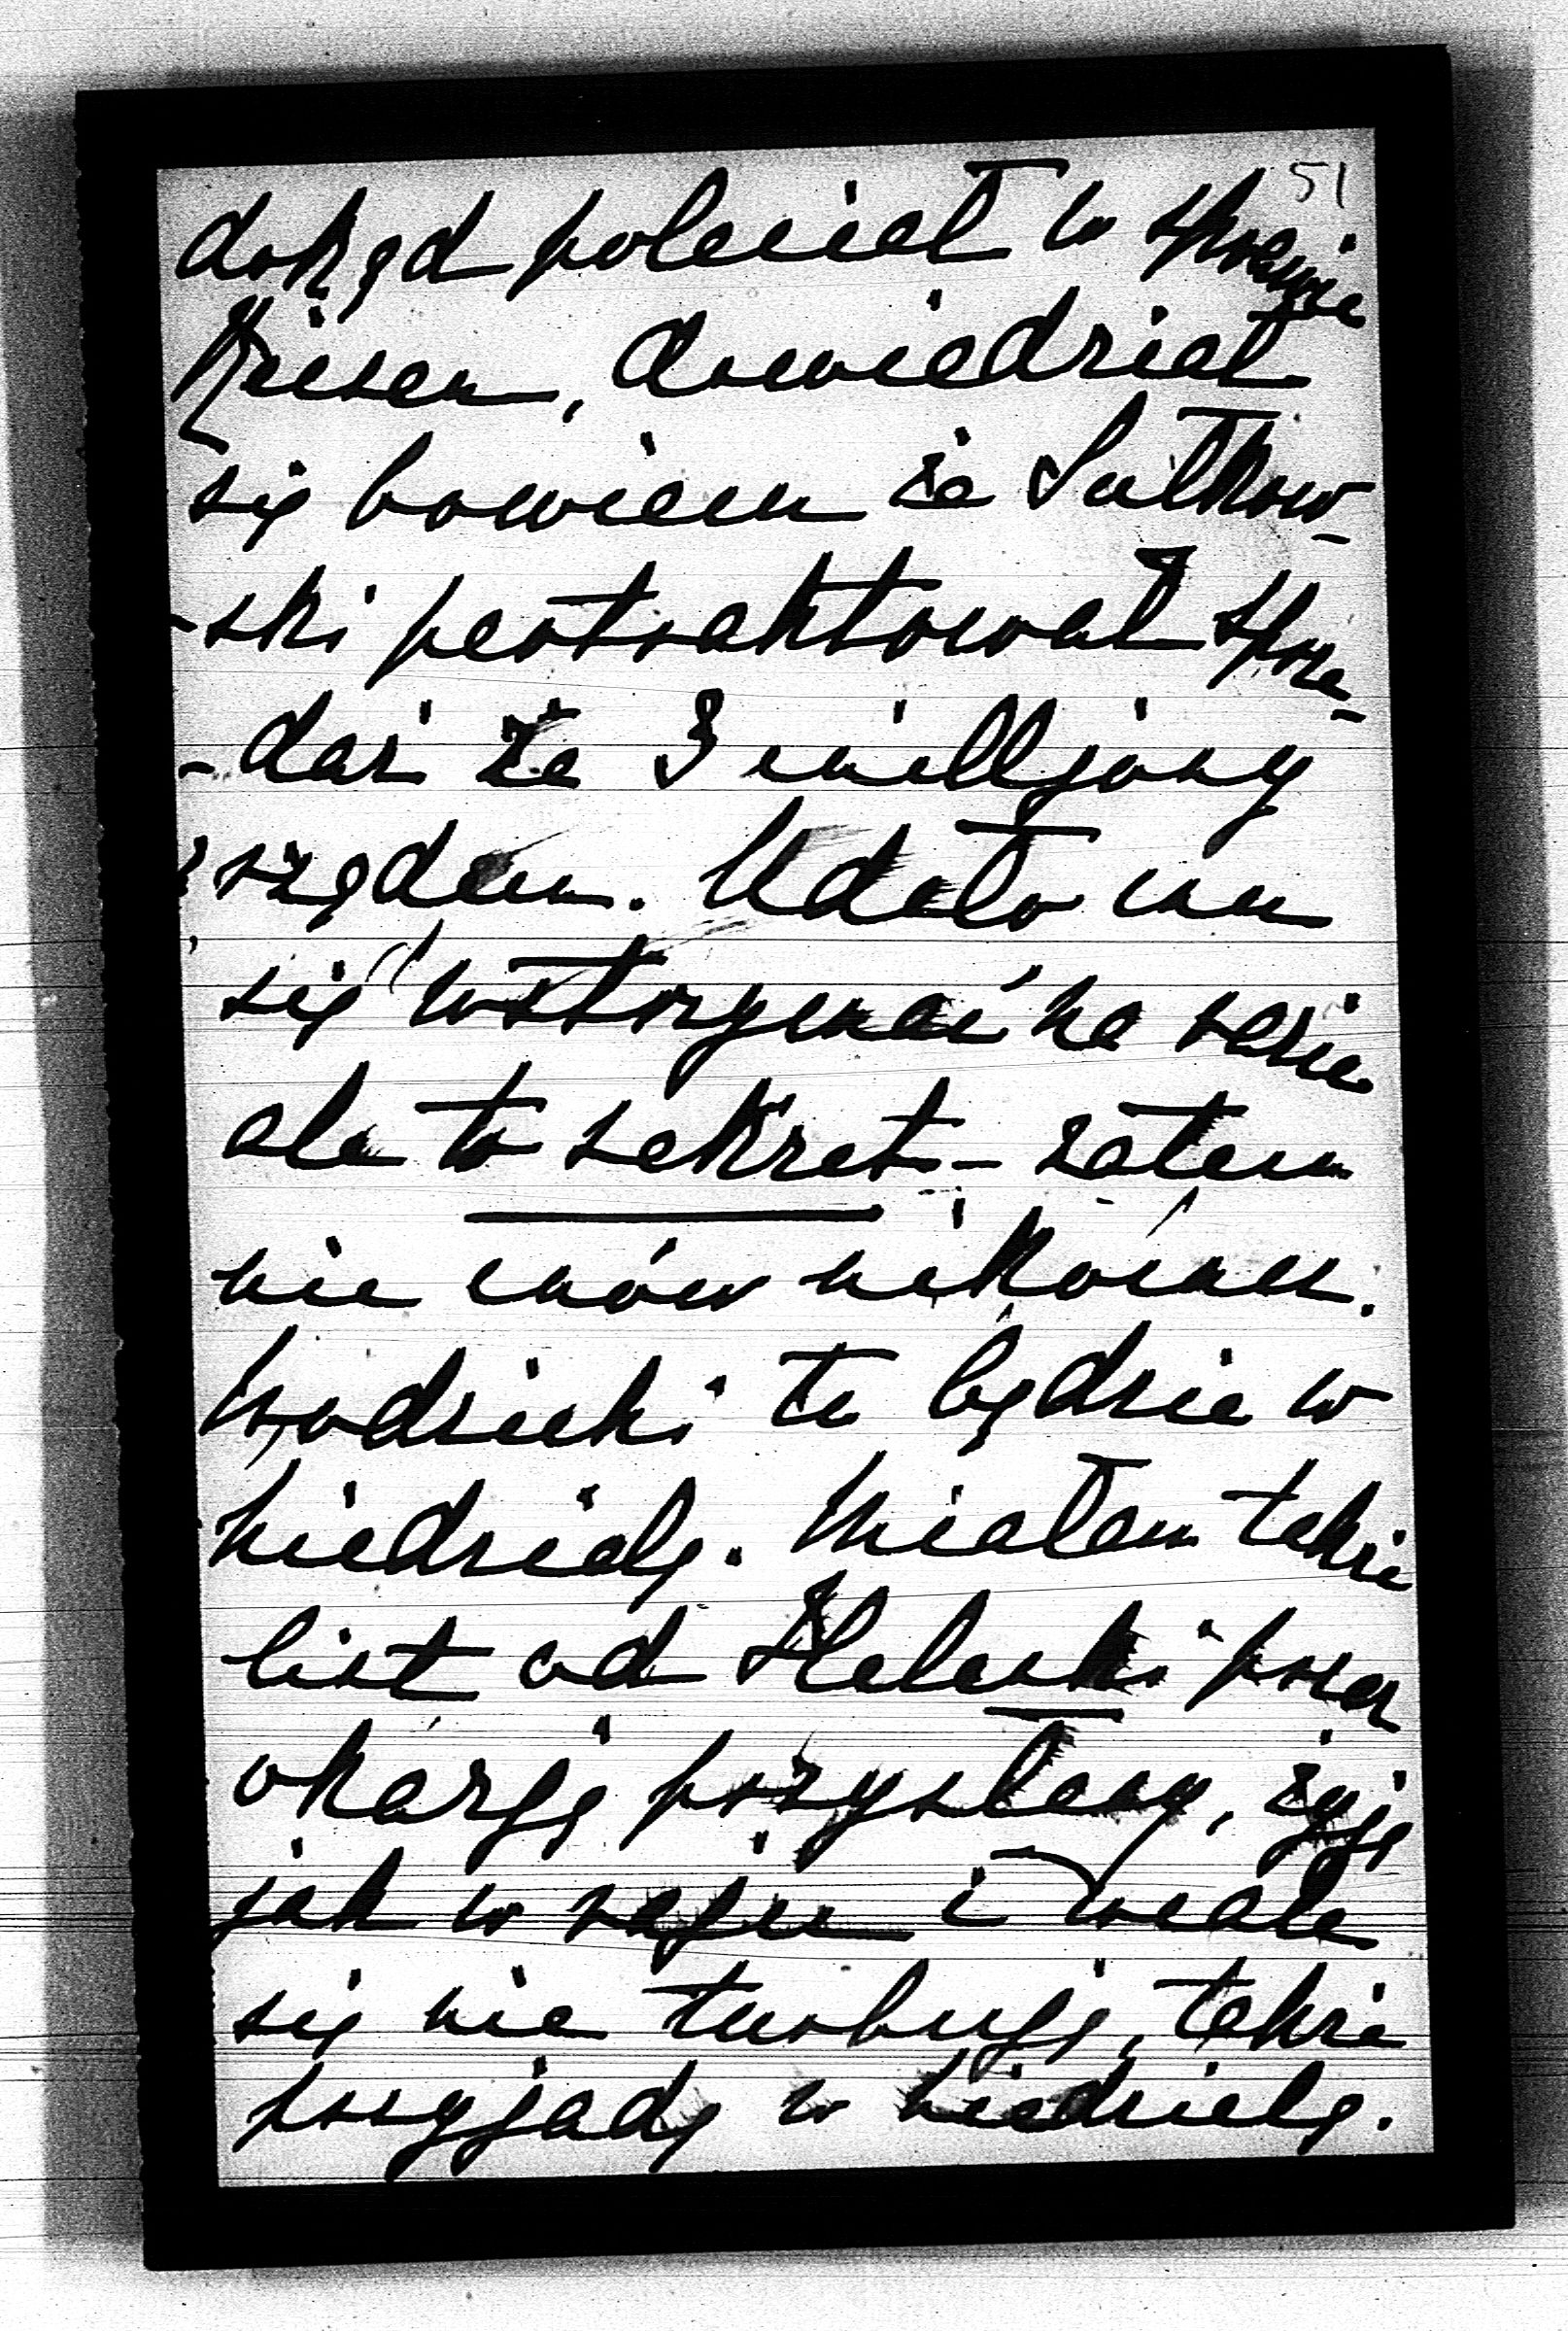 51
dokąd poleciał w sprawie
Rzisen, dowiedział
się bowiem że Sułkow-
-ski pertraktował sprze-
-daż za 3 milljony
rządem. Udało mu
się wstrzymać na razie
ale to sekret – zatem
nie mów nikomu.
Wodzicki tu będzie w
niedzielę. Miałam także
list od Helenki przez
okazję przysłany, żyje
jak w raju i wcale
się nie turbuję, także
przyjadę w niedzielę.